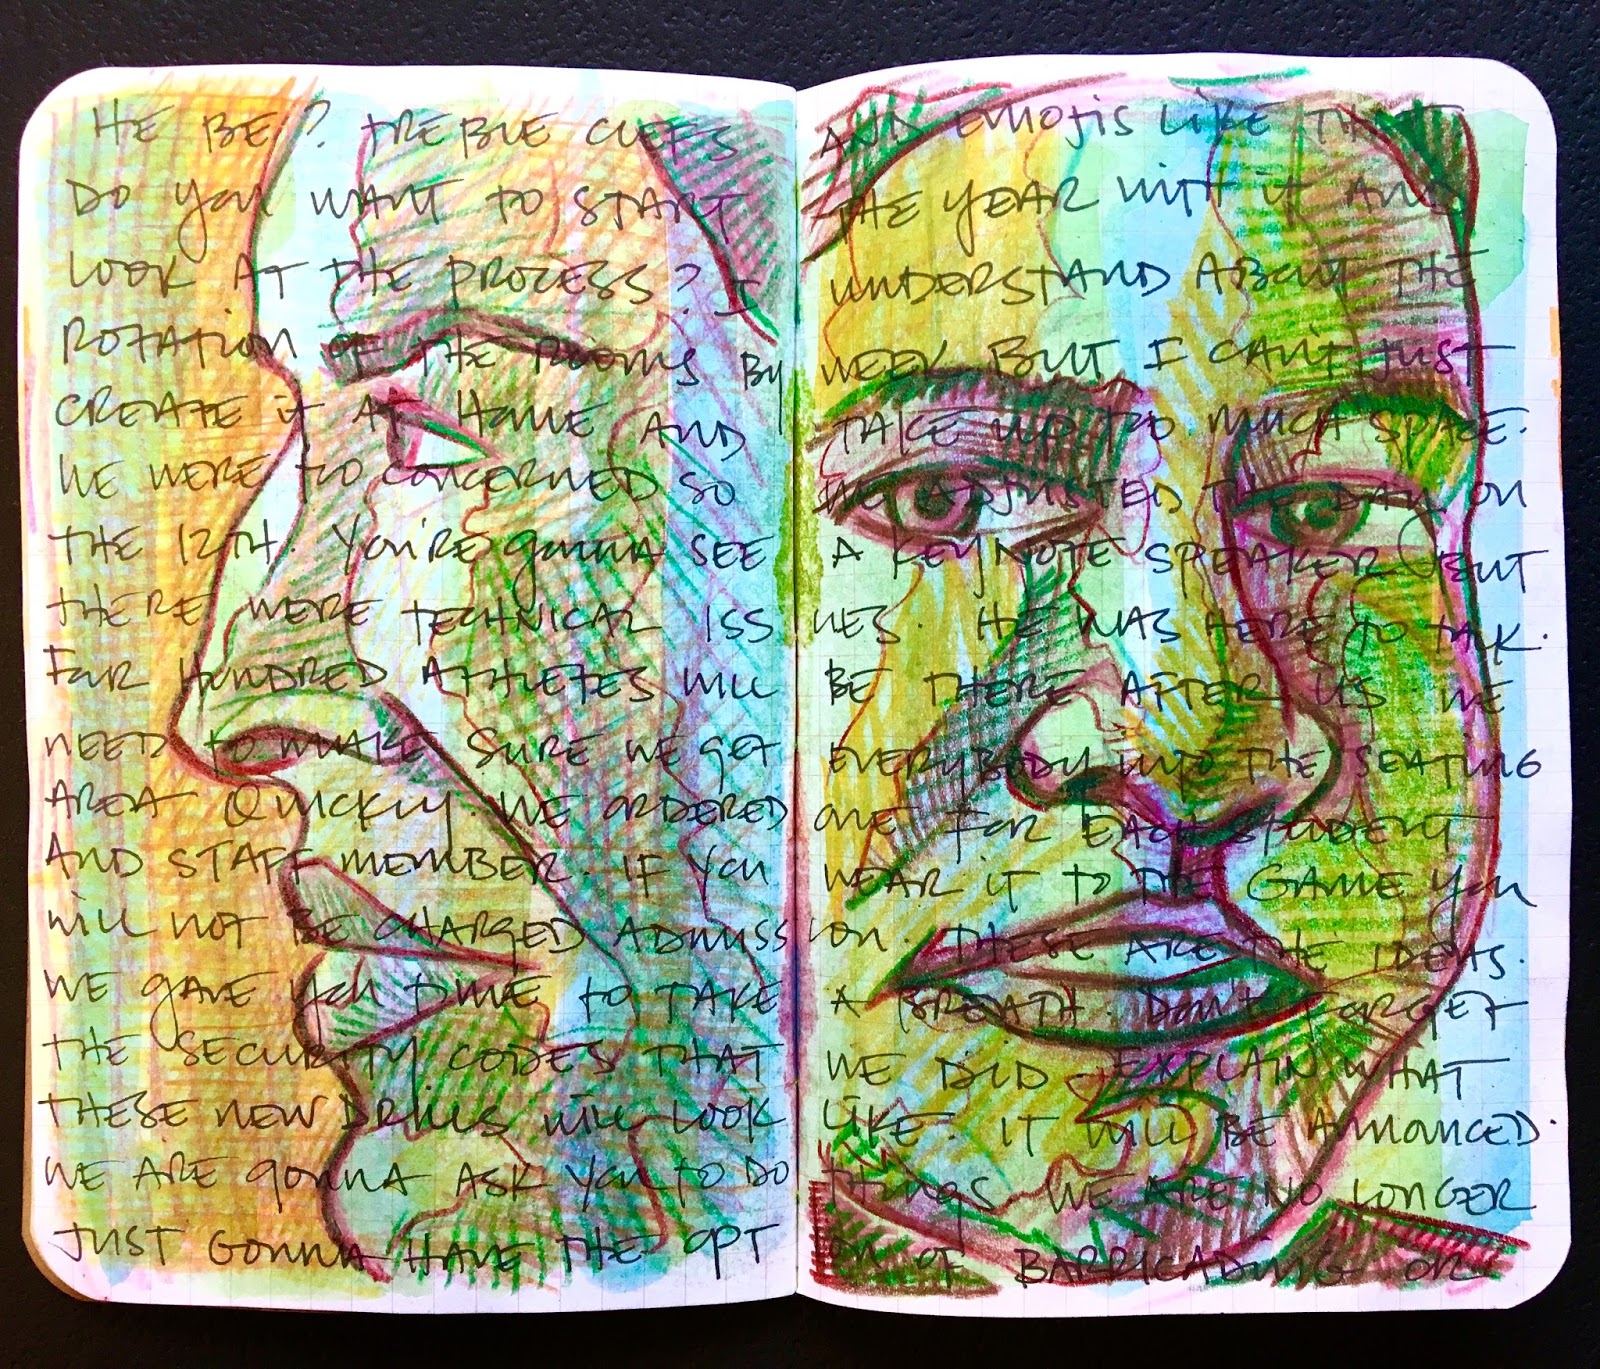 HE BE? TREBLE CLEFS AND EMOJIS LIKE THAT
DO YOU WANT TO START THE YEAR WITH IT AND
LOOK AT THE PROCESS? I UNDERSTAND ABOUT THE
ROTATION OF THE ROOMS BY WEEK BUT I CAN'T JUST
CREATE IT AT HOME AND TAKE UP TOO MUCH SPACE.
WE WERE TOO CONCERNED SO WE ADJUSTED THE DAY ON
THE 12TH. YOU'RE GONNA SEE A KEYNOTE SPEAKER BUT
THERE WERE TECHNICAL ISSUES. HE WAS HERE TO TALK.
FOUR HUNDRED ATHLETES WILL BE THERE AFTER US. WE
NEED TO MAKE SURE WE GET EVERYBODY INTO THE SEATING
AREA QUICKLY. WE ORDERED ONE FOR EACH STUDENT
AND STAFF MEMBER. IF YOU WEAR IT TO THE GAME YOU
WILL NOT BE CHARGED ADMISSION. THESE ARE THE IDEAS.
WE GAVE YOU TIME TO TAKE A BREATH. DON'T FORGET
THE SECURITY CODES THAT WE DID EXPLAIN WHAT
THESE NEW DRILLS WILL LOOK LIKE. IT WILL BE ANNOUNCED.
WE ARE GONNA ASK YOU TO DO THINGS WE ARE NO LONGER
JUST GONNA HAVE THE OPTION OF BARRICADING OR